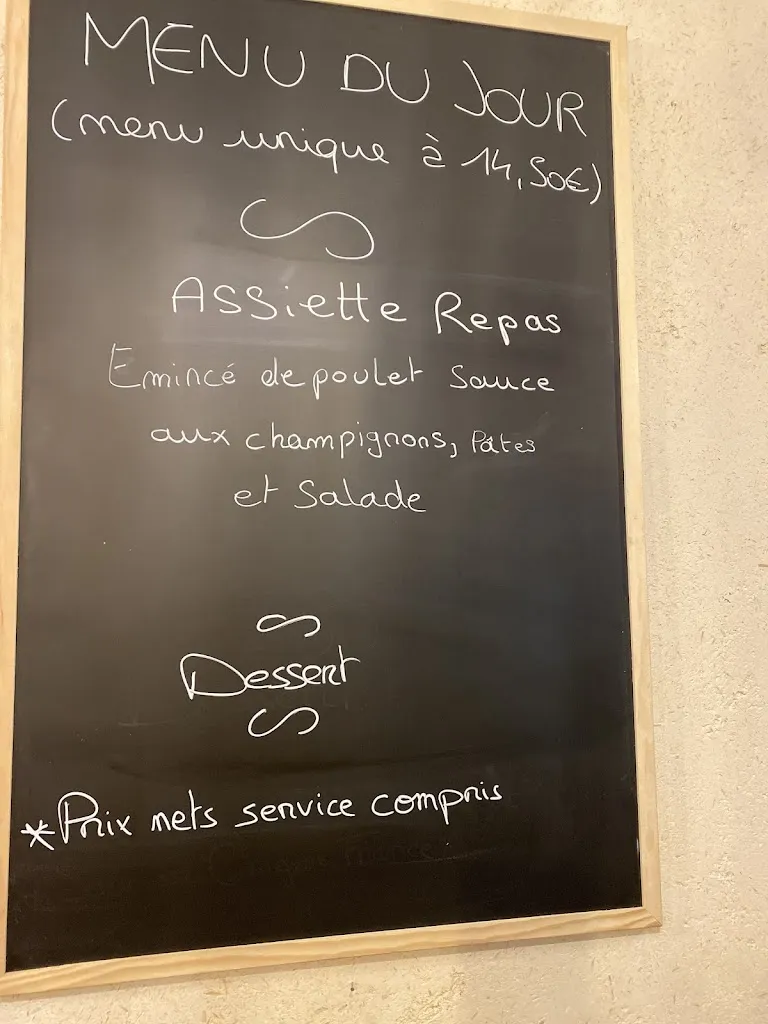 MENU DU JOUR
(menu unique à 14,50€)
Assiette Repas
Emincé de poulet sauce
aux champignons, Pâtes
et Salade
Dessert
*Prix nets service compris